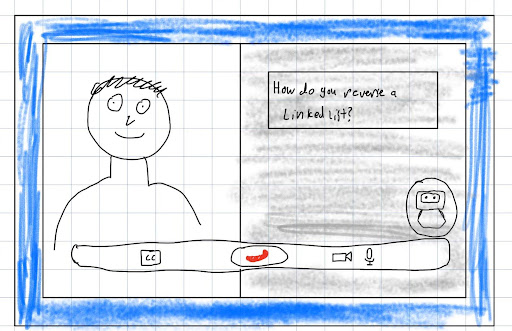 How do you reverse a
Linked List?
CC